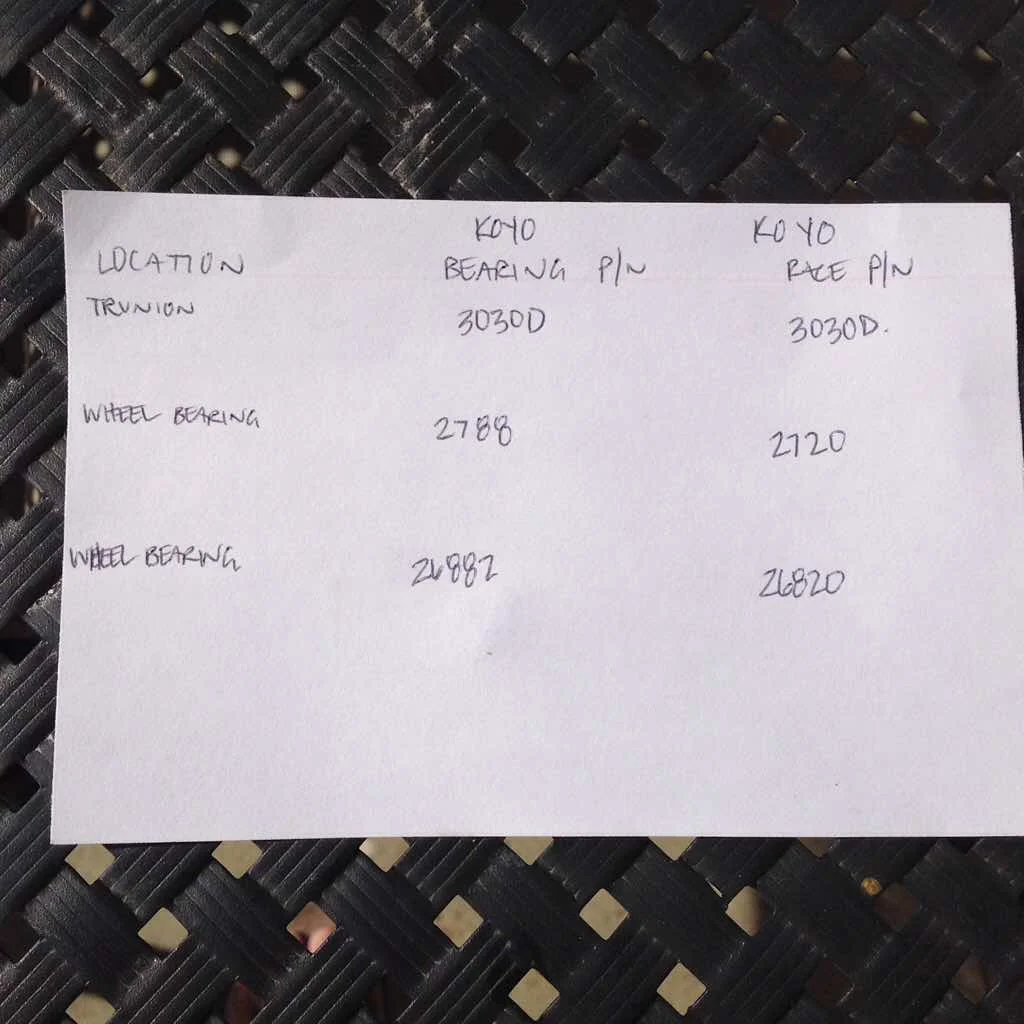 KOYO KOYO
LOCATION BEARING P/N RACE P/N
TRUNION 3030D 3030D.
WHEEL BEARING 2788 2720
WHEEL BEARING 26882 26820